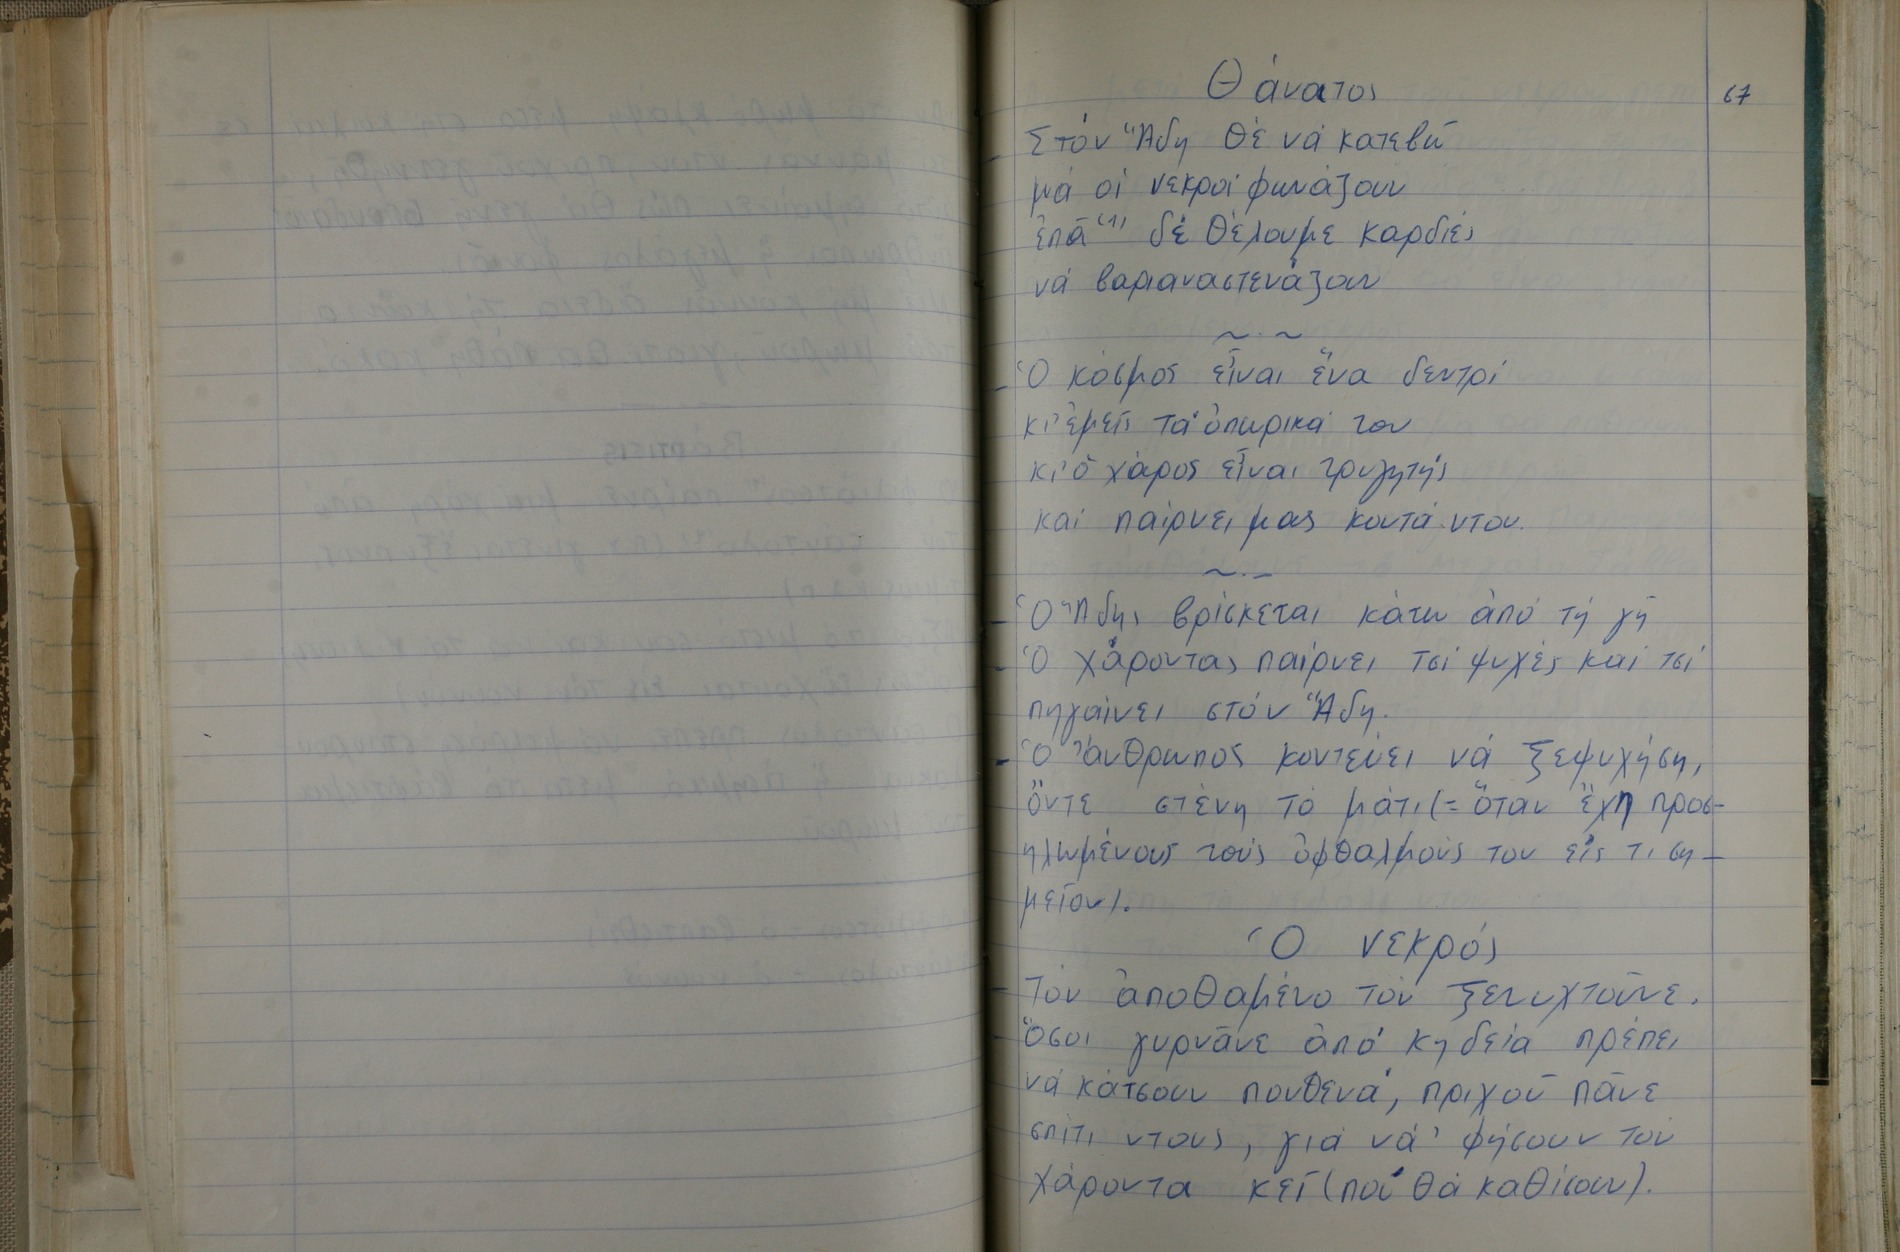 Θάνατος
67
Στόν Ἅδη θέ νά κατεβῶ
μά οἱ νεκροί φωνάζουν
ἐπᾶ(1) δέ θέλουμε καρδιές
νά βαριαναστενάζουν
~·~
Ὁ κόσμος εἶναι ἕνα δεντρί
κι' ἐμεῖς τά ὀπωρικά του
κι' ὁ χάρος εἶναι τρυγητής
καί παίρνει μας κοντά ντου.
~·~
- Ὁ Ἅδης βρίσκεται κάτω ἀπό τή γῆ
- Ὁ χάροντας παίρνει τσί ψυχές καί τσί
πηγαίνει στόν Ἅδη.
- Ὁ ἄνθρωπος κοντεύει νά ξεψυχήση,
ὄντε στένη τό μάτι (= ὅταν ἔχη προσ-
ηλωμένους τούς ὀφθαλμούς του εἰς τι ση-
μεῖον).
Ὁ νεκρός
- Τόν ἀποθαμένο τόν ξενυχτοῦνε.
- Ὅσοι γυρνᾶνε ἀπό κηδεία πρέπει
νά κάτσουν πουθενά, πριχοῦ πᾶνε
σπίτι ντους, γιά νά' φήσουν τόν
χάροντα κεῖ (πού θά καθίσουν).